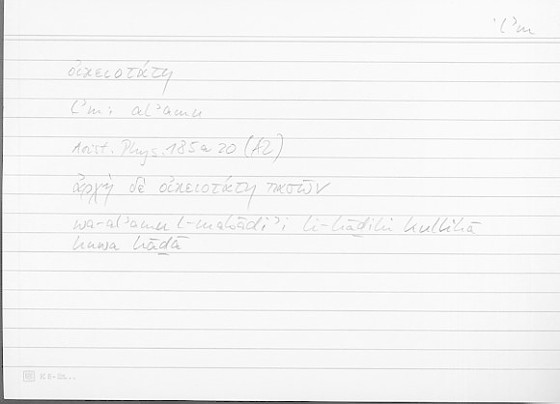 lʾm
οἰκειοτάτη
lʾm: alʾamu
Arist. Phys. 185a20 (A2)
ἀρχὴ δὲ οἰκειοτάτη πασῶν
wa-alʾamu l-mabādiʾi li-hāḏihi kullihā
huwa hāḏā